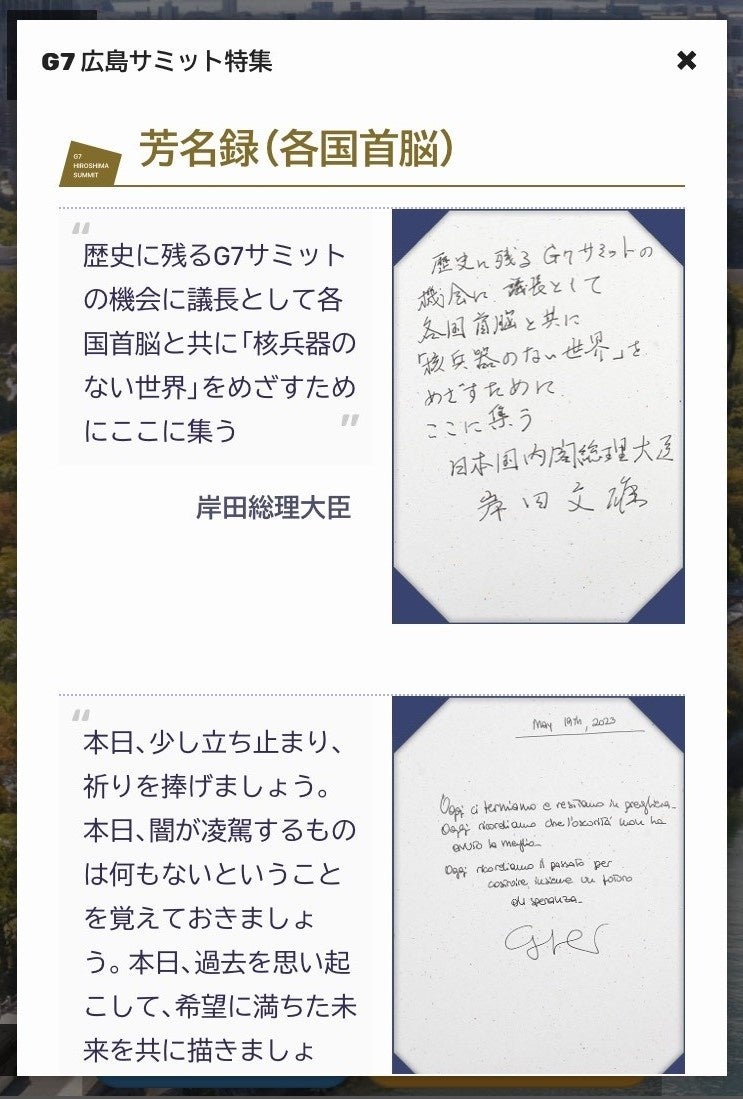 G7 広島サミット特集
✖
G7
HIROSHIMA
SUMMIT
芳名録(各国首脳)
“
歴史に残るG7サミット
の機会に議長として各
国首脳と共に「核兵器の
ない世界」をめざすため
にここに集う
”
岸田総理大臣
歴史に残る G7サミットの
機会に 議長として
各国首脳と共に
「核兵器のない世界」を
めざすために
ここに集う
日本国内閣総理大臣
岸田文雄
“
本日、少し立ち止まり、
祈りを捧げましょう。
本日、闇が凌駕するもの
は何もないということ
を覚えておきましょ
う。本日、過去を思い起
こして、希望に満ちた未
来を共に描きましょ
May 19th, 2023
Oggi ci fermiamo e restiamo in preghiera.
Oggi ricordiamo che l'oscurità non ha
avuto la meglio.
Oggi ricordiamo il passato per
costruire, insieme un futuro
di speranza.